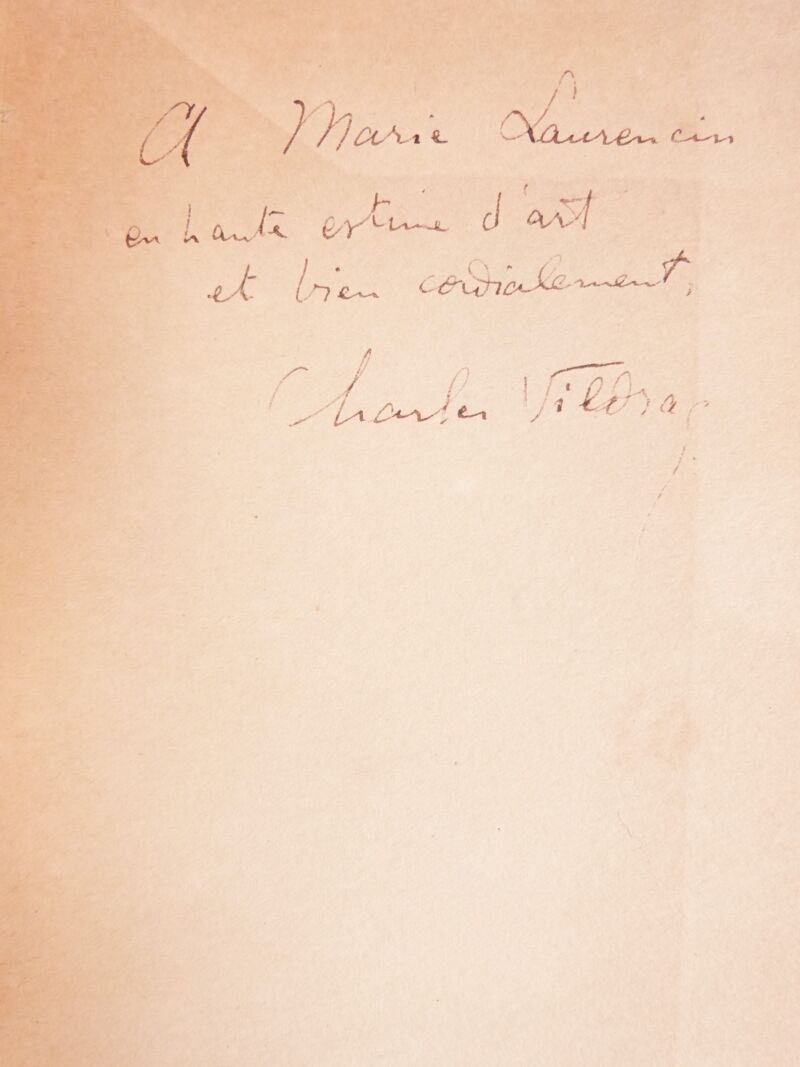 A Marie Laurencin
en haute estime d'art
et bien cordialement,
Charles Vildrac